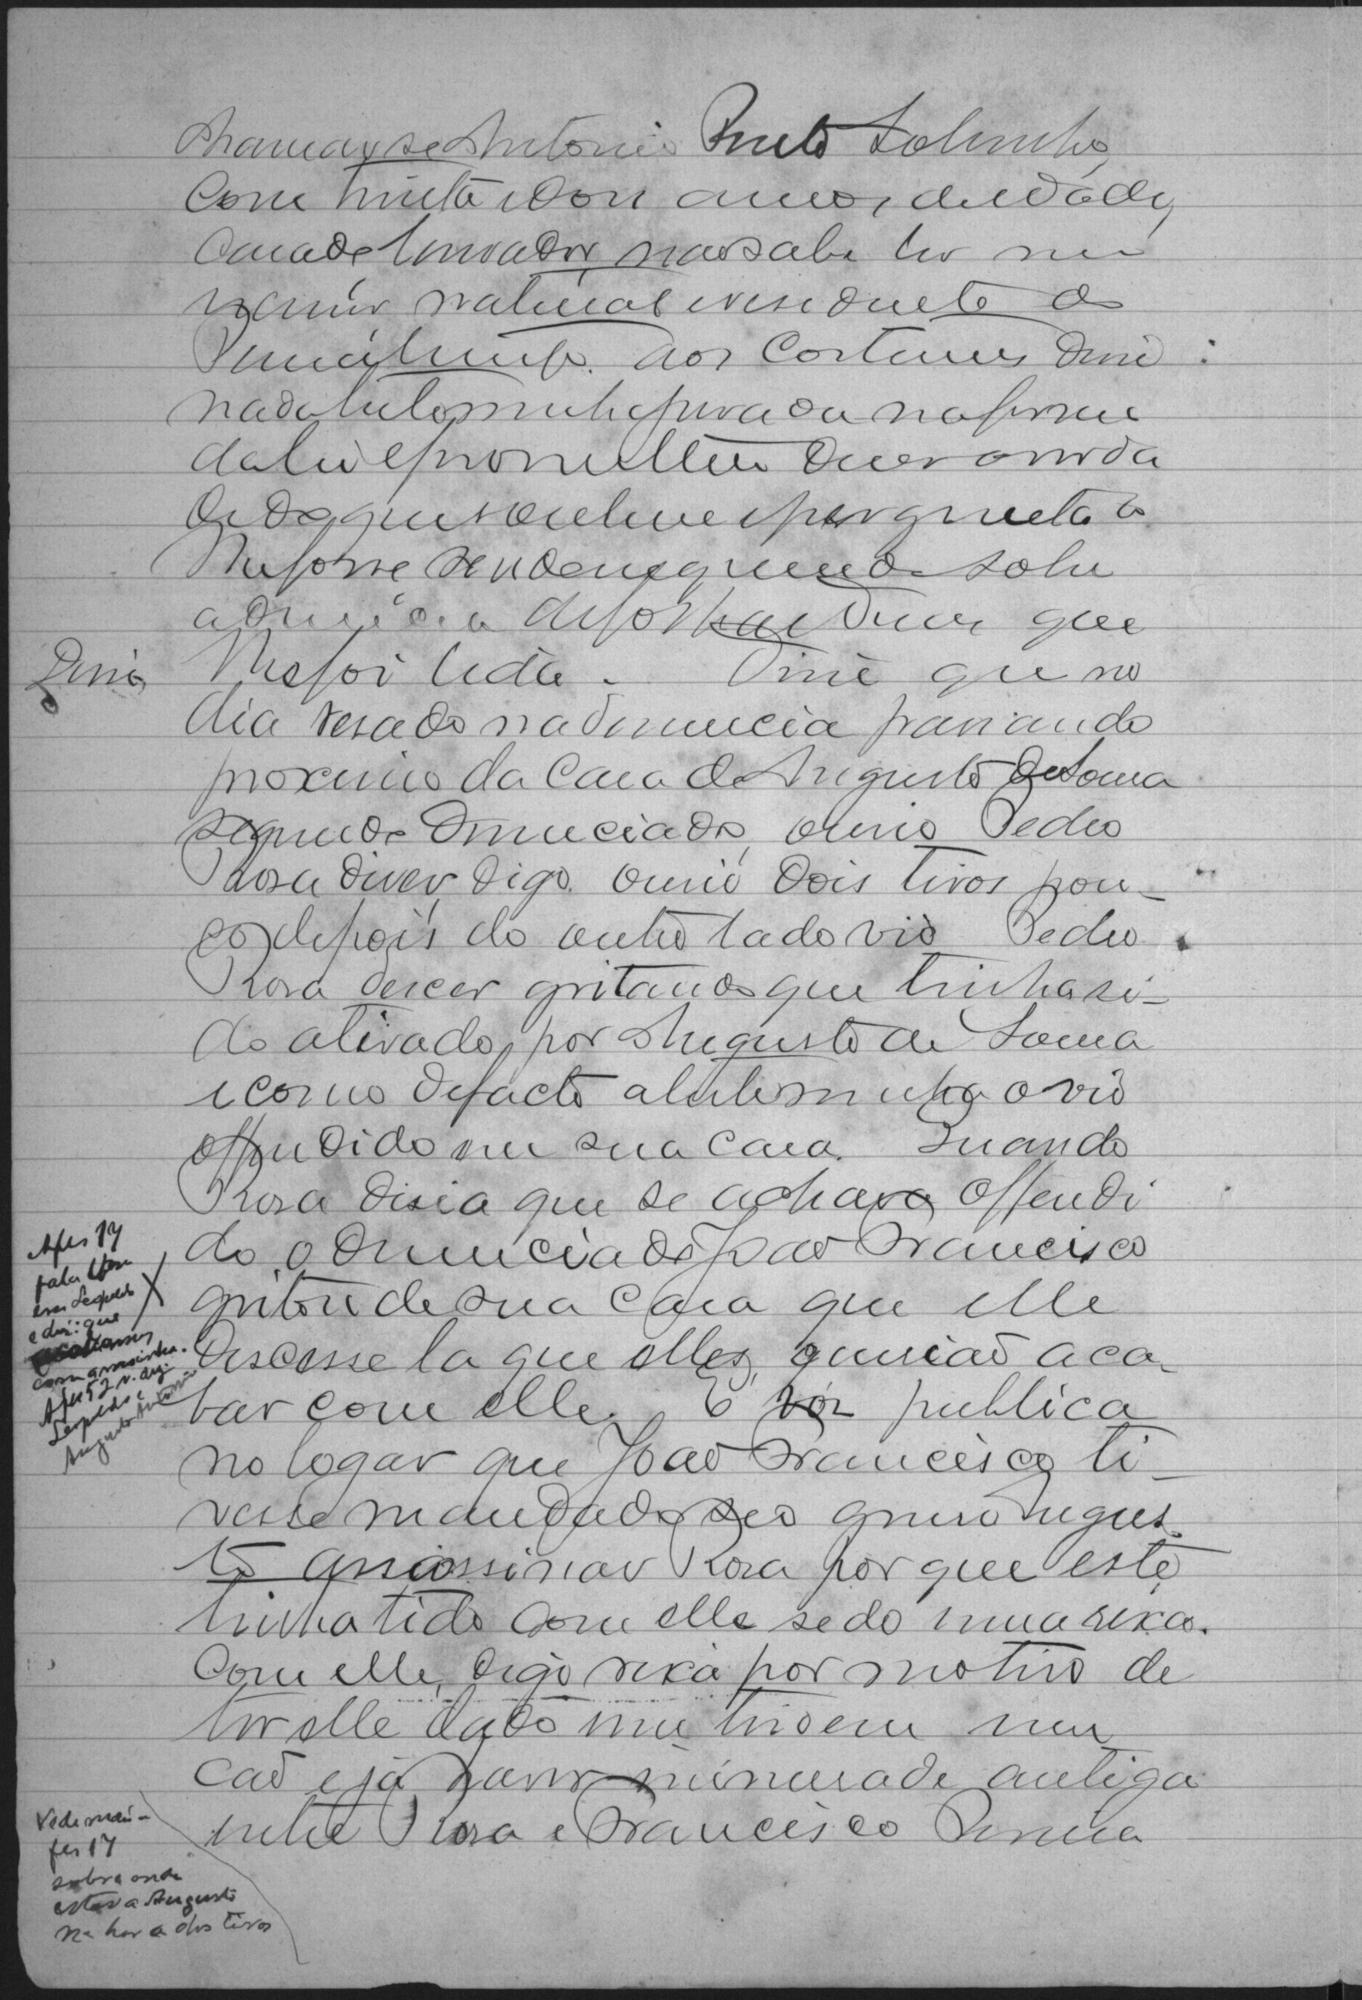 chamar se Antonio Preto Sobrinho,
com trinta e dois annos de idade,
casado lavrador, não sabe ler nem
natural e residente
aos costumes disse
nada testemunha jurada na forma
da lei e prometteu dizer a verda
de do que soubesse e perguntado
lhe fosse sendo inquerido sobre
a denuncia de folhas duas que
lhe foi lida. Disse que no
Disse
dia resado na denuncia passando
proximo da casa de Augusto de Sousa
segundo denunciado, ouvio Pedro
Rosa dizer, digo, ouvio dois tiros pou-
co depois do outro lado vio Pedro
Rosa descer gritando que tinha si-
do atirado por Augusto de Sousa
e como de facto a testemunha o vio
offendido em sua casa. Quando
Rosa disia que se achava offendi
do, o denunciado João Francisco
gritou de sua casa que elle
descesse la que elles querião aca-
bar com elle. É vóz publica
no logar que João Francisco ti-
vesse mandado seo genro Augus-
to assassinar Rosa por que este
tinha tido com elle sedo uma rixa.
Com elle, digo rixa por motivo de
ter elle dado em um
cão e já haver inimisade antiga
entre Rosa e Francisco Pereira
A fls 17
fala
em Leopoldo
e diz: que
com assassinha.
A fls 52 v. diz
Leopoldo e
Augusto Antonio
Vede mais
fls 17
sobre onde
estava Augusto
na hora dos tiros